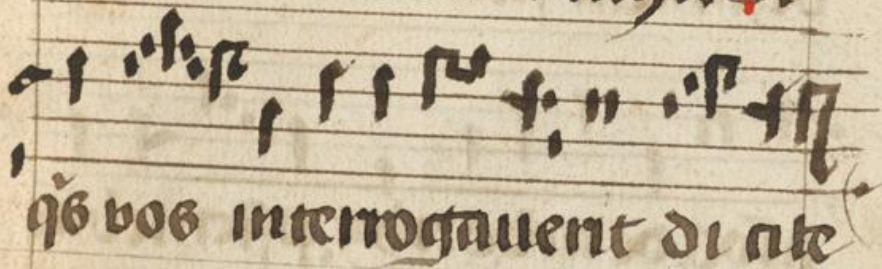 q̄s vos interrogauerit di cite